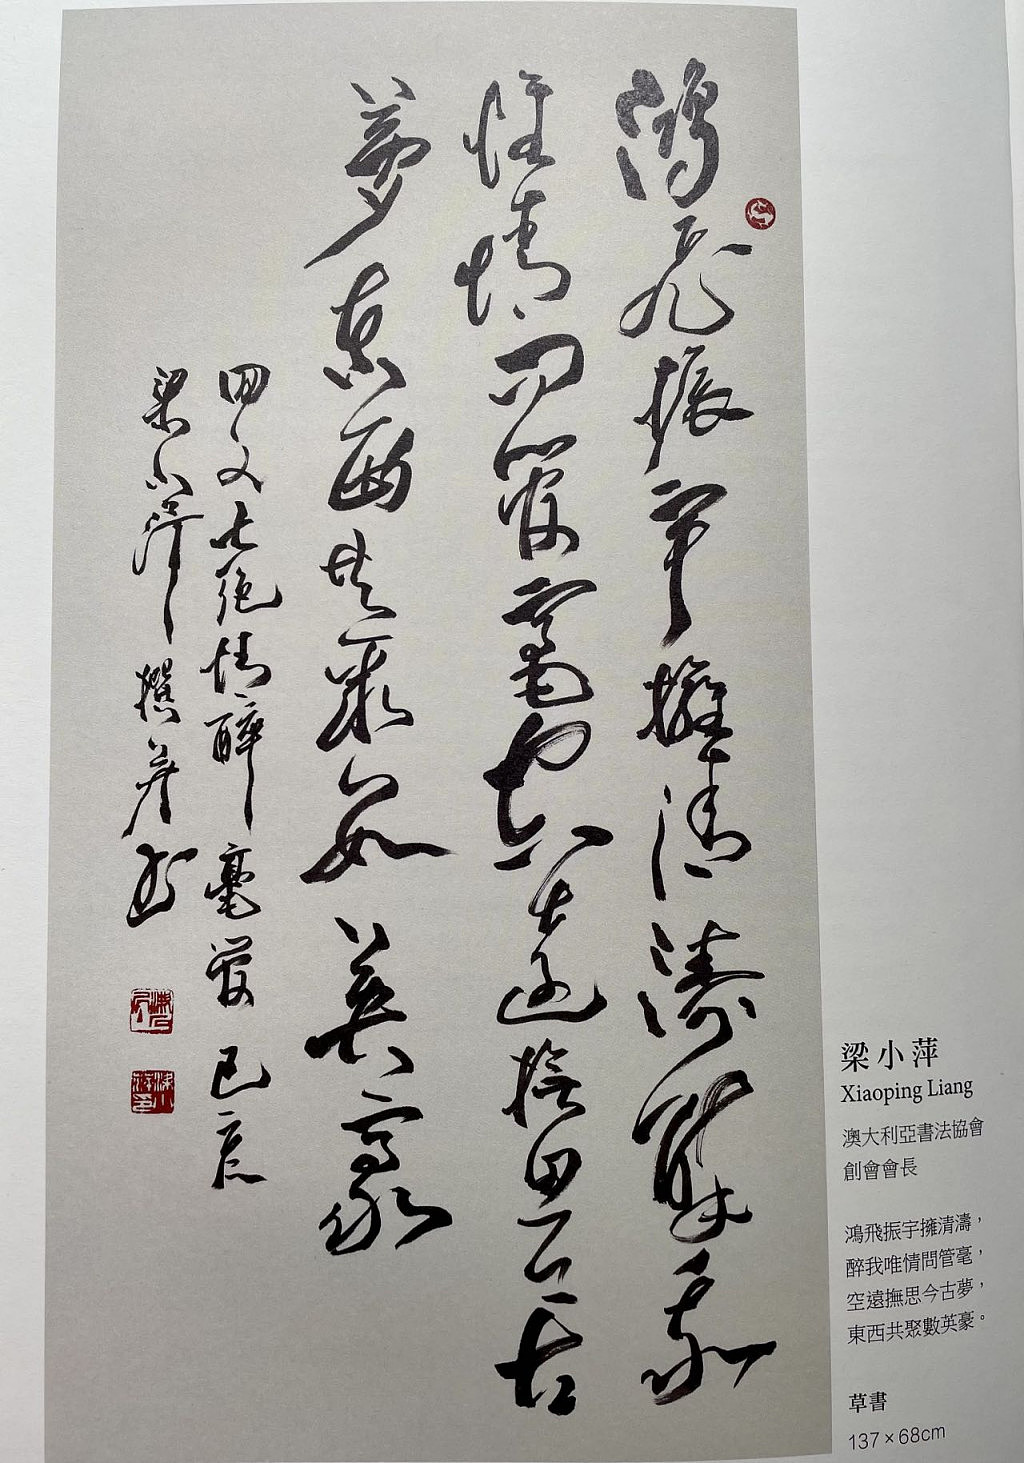 鴻飛振宇擁清濤醉我
惟情問管毫空遠撫思今古
夢東西共聚數英豪
回文七絕情醉毫管 己亥
梁小萍撰并書
梁小萍
Xiaoping Liang
澳大利亞書法協會
創會會長
鴻飛振宇擁清濤，
醉我唯情問管毫，
空遠撫思今古夢，
東西共聚數英豪。
草書
137×68cm